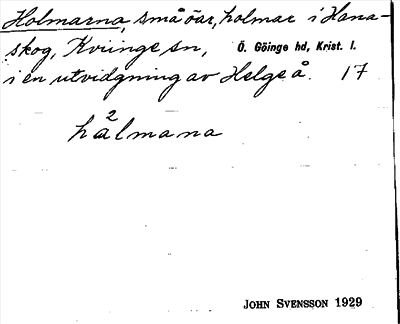 Holmarna, små öar, holmar i Hana-
skog, Kviinge sn, Ö. Göinge hd, Krist. l.
i en utvidgning av Helge å. 17
hå2lmana
JOHN SVENSSON 1929